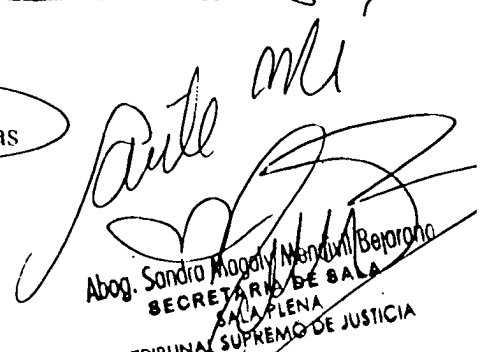 as
ante mí
Abog. Sandra Magaly Mendivil Bejarano
SECRETARIA DE SALA
SALA PLENA
TRIBUNAL SUPREMO DE JUSTICIA